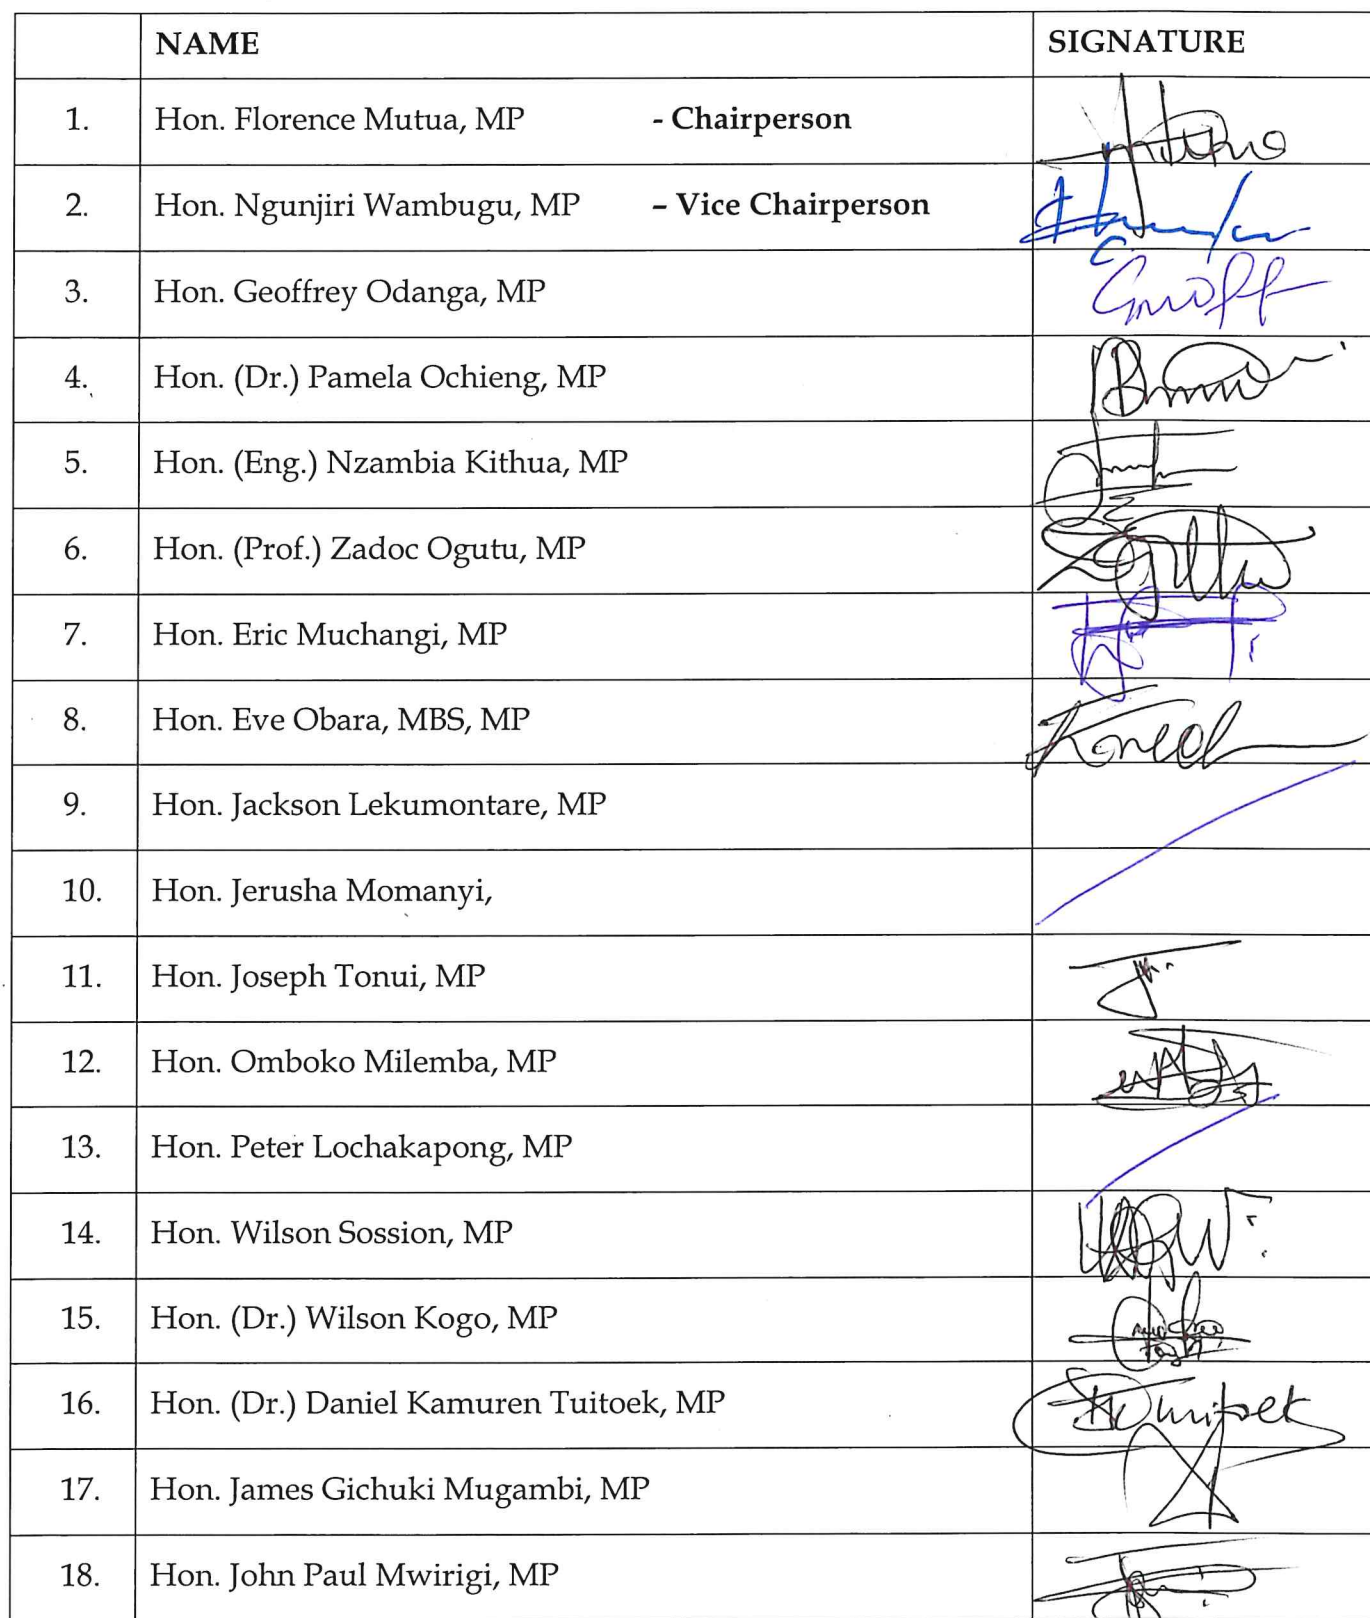 NAME SIGNATURE
1. Hon. Florence Mutua, MP - Chairperson
2. Hon. Ngunjiri Wambugu, MP – Vice Chairperson
3. Hon. Geoffrey Odanga, MP
4. Hon. (Dr.) Pamela Ochieng, MP
5. Hon. (Eng.) Nzambia Kithua, MP
6. Hon. (Prof.) Zadoc Ogutu, MP
7. Hon. Eric Muchangi, MP
8. Hon. Eve Obara, MBS, MP
9. Hon. Jackson Lekumontare, MP
10. Hon. Jerusha Momanyi,
11. Hon. Joseph Tonui, MP
12. Hon. Omboko Milemba, MP
13. Hon. Peter Lochakapong, MP
14. Hon. Wilson Sossion, MP
15. Hon. (Dr.) Wilson Kogo, MP
16. Hon. (Dr.) Daniel Kamuren Tuitoek, MP
17. Hon. James Gichuki Mugambi, MP
18. Hon. John Paul Mwirigi, MP